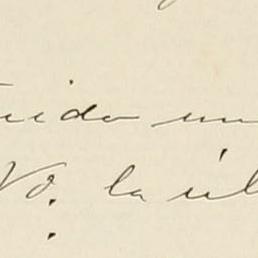 uido un
Vd. la úl